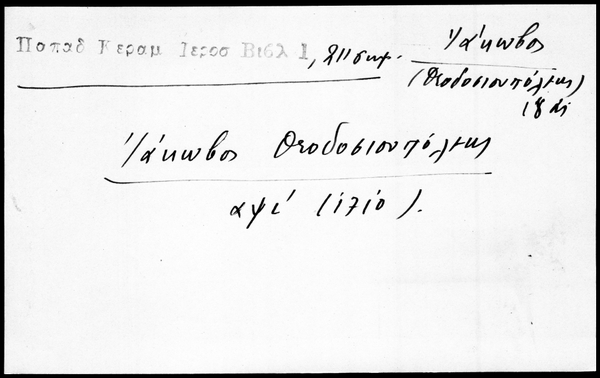 Παπαδ Κεραμ Ιεροσ Βιβλ 1, 211 σημ.
Ἰάκωβος
(Θεοδοσιουπόλεως)
18 αἰ
Ἰάκωβος Θεοδοσιουπόλεως
αψι΄ (1710).